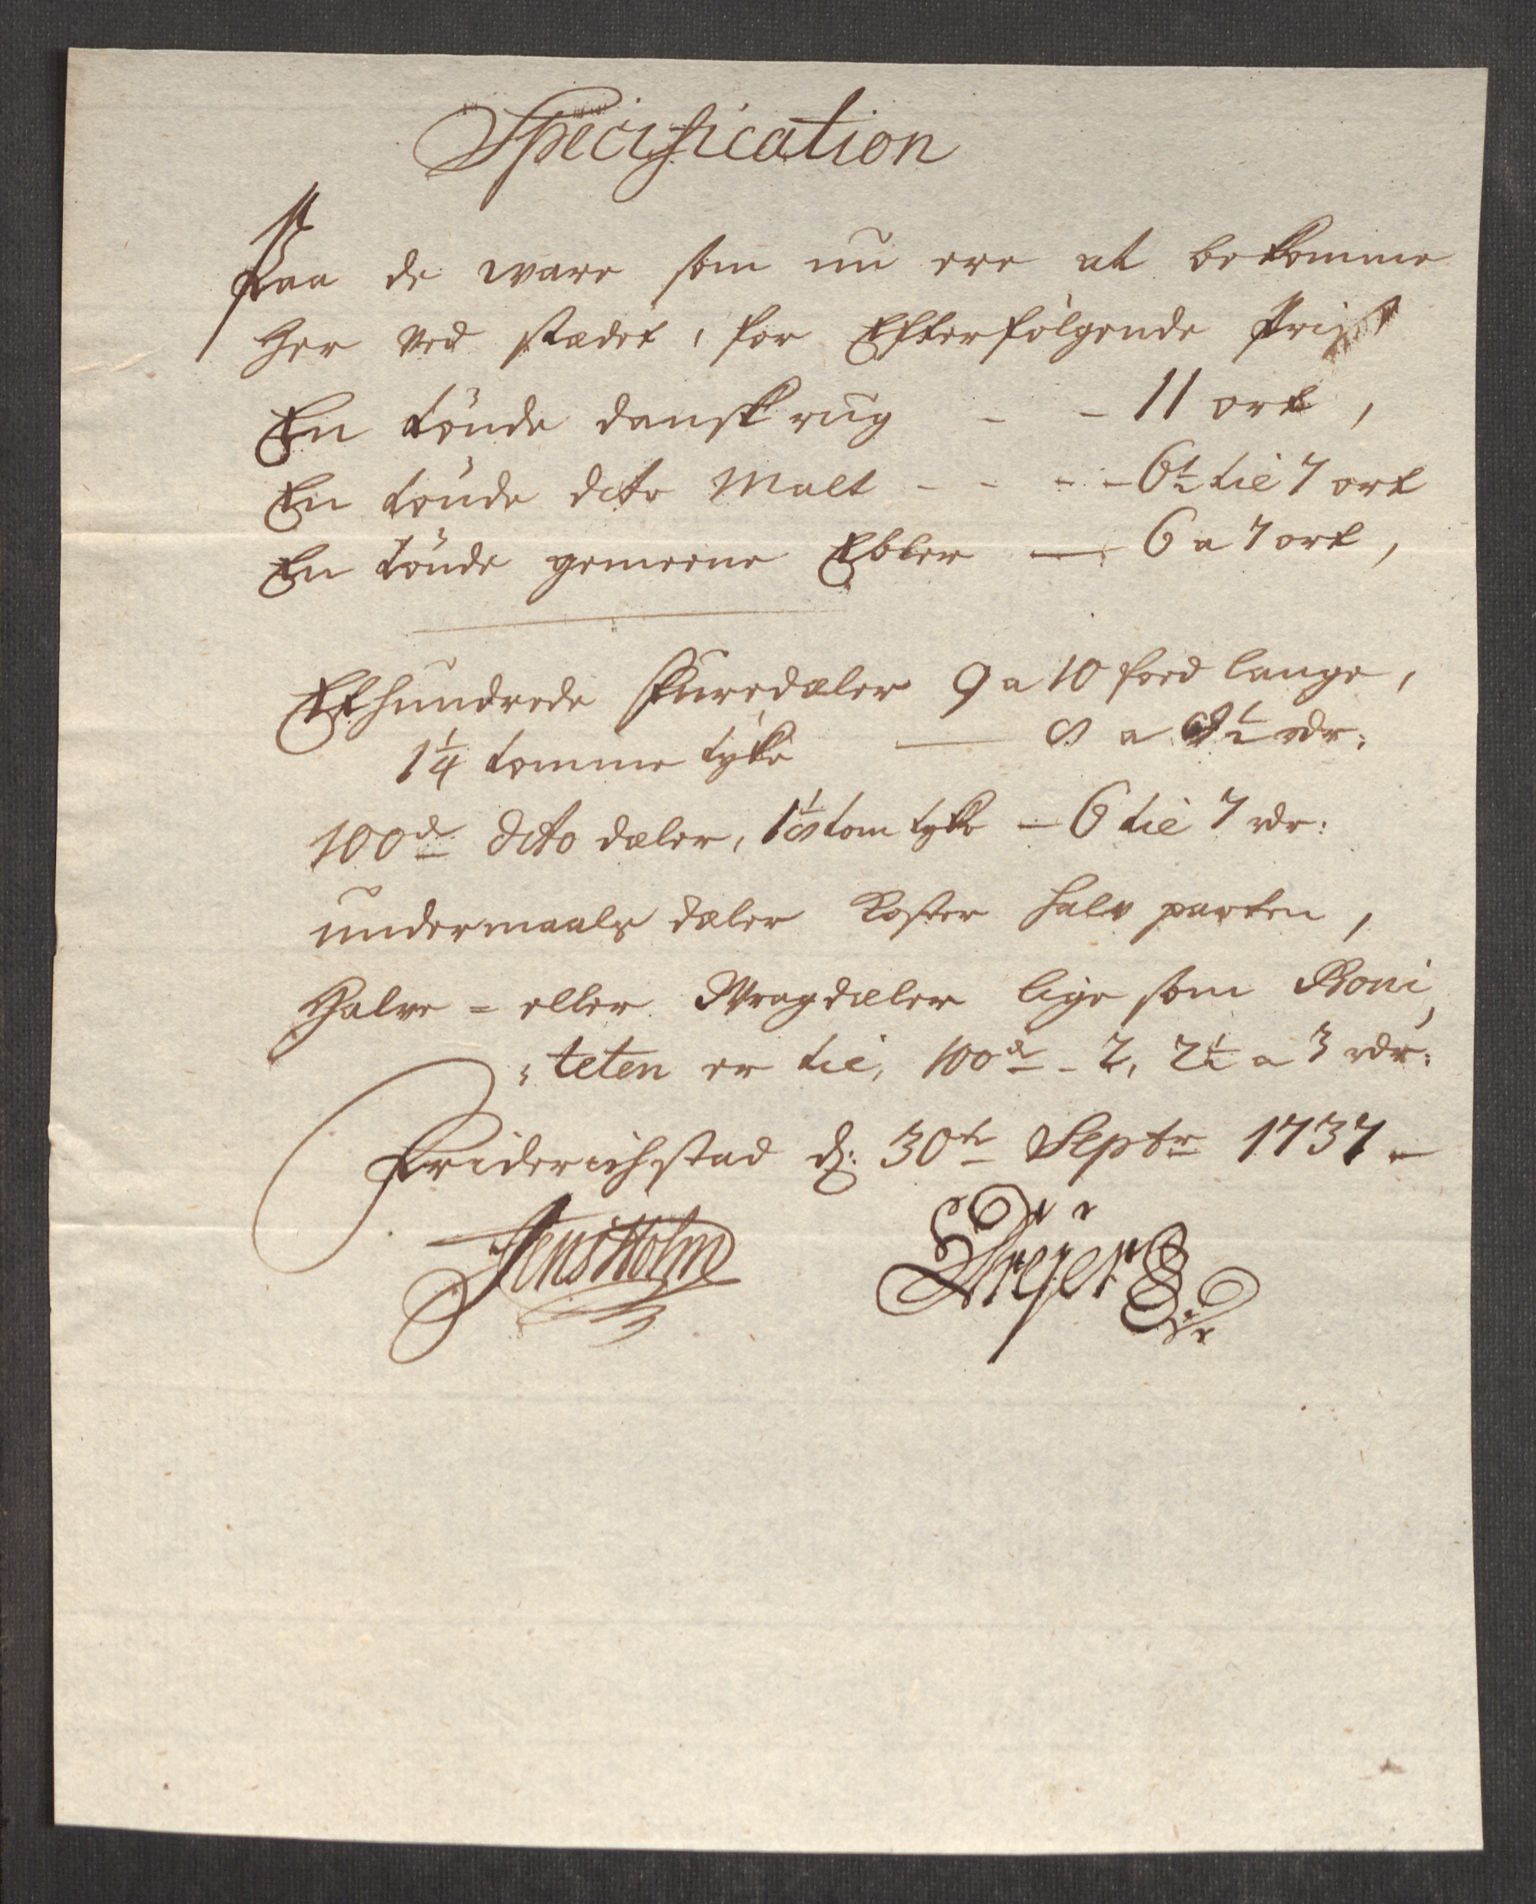 Specification
Paa de ware som nu ere at bekomme
Her ved stædet, for Efterfølgende Priiß
En tönde dansk rug - - 11 ort,
En tönde dito Malt - - - - 6½ tie 7 ort
En tönde gemeene Ebler — 6 a 7 ort,
Et hundrede Furedæler 9 a 10 foed lange,
1¼ tomme tyke — 8 a 8½ rdr:
100de dito dæler, 1⅛ tom tyke — 6 tie 7 rdr:
undermaals dæler koster halv parten,
Halve = eller Wragdæler lige som Boni,
: teten er tie, 100de - 2, 2½ a 3 rdr:
Friderichstad d: 30te Septr 1737 -
Jens Holm
Dreÿer